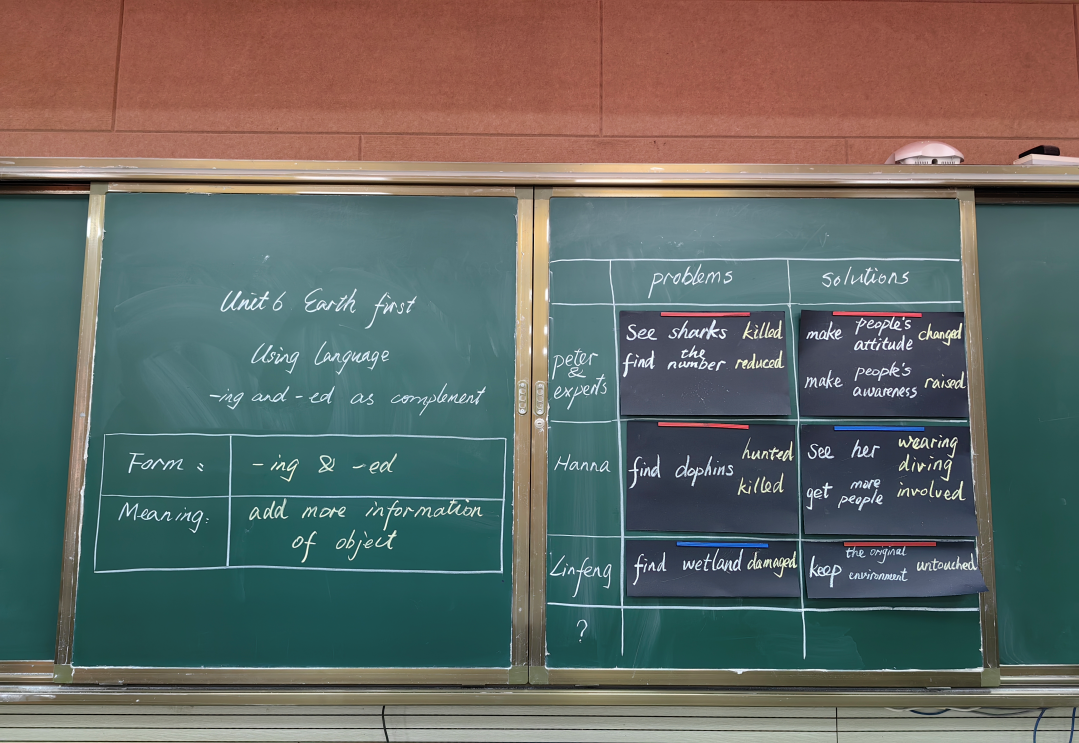 Unit 6 Earth first
Using Language
-ing and -ed as complement
Form: -ing & -ed
Meaning: add more information
of object
problems solutions
peter
&
experts
See sharks killed
find the number reduced
make people's attitude changed
make people's awareness raised
Hanna
find dophins hunted
killed
See her wearing
diving
get more people involved
Linfeng
find wetland damaged
keep the original environment untouched
?